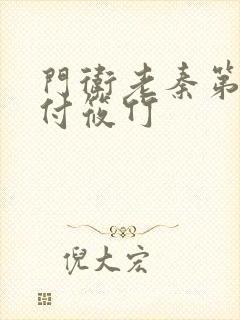 門衛老秦第
付筱竹
倪大宏